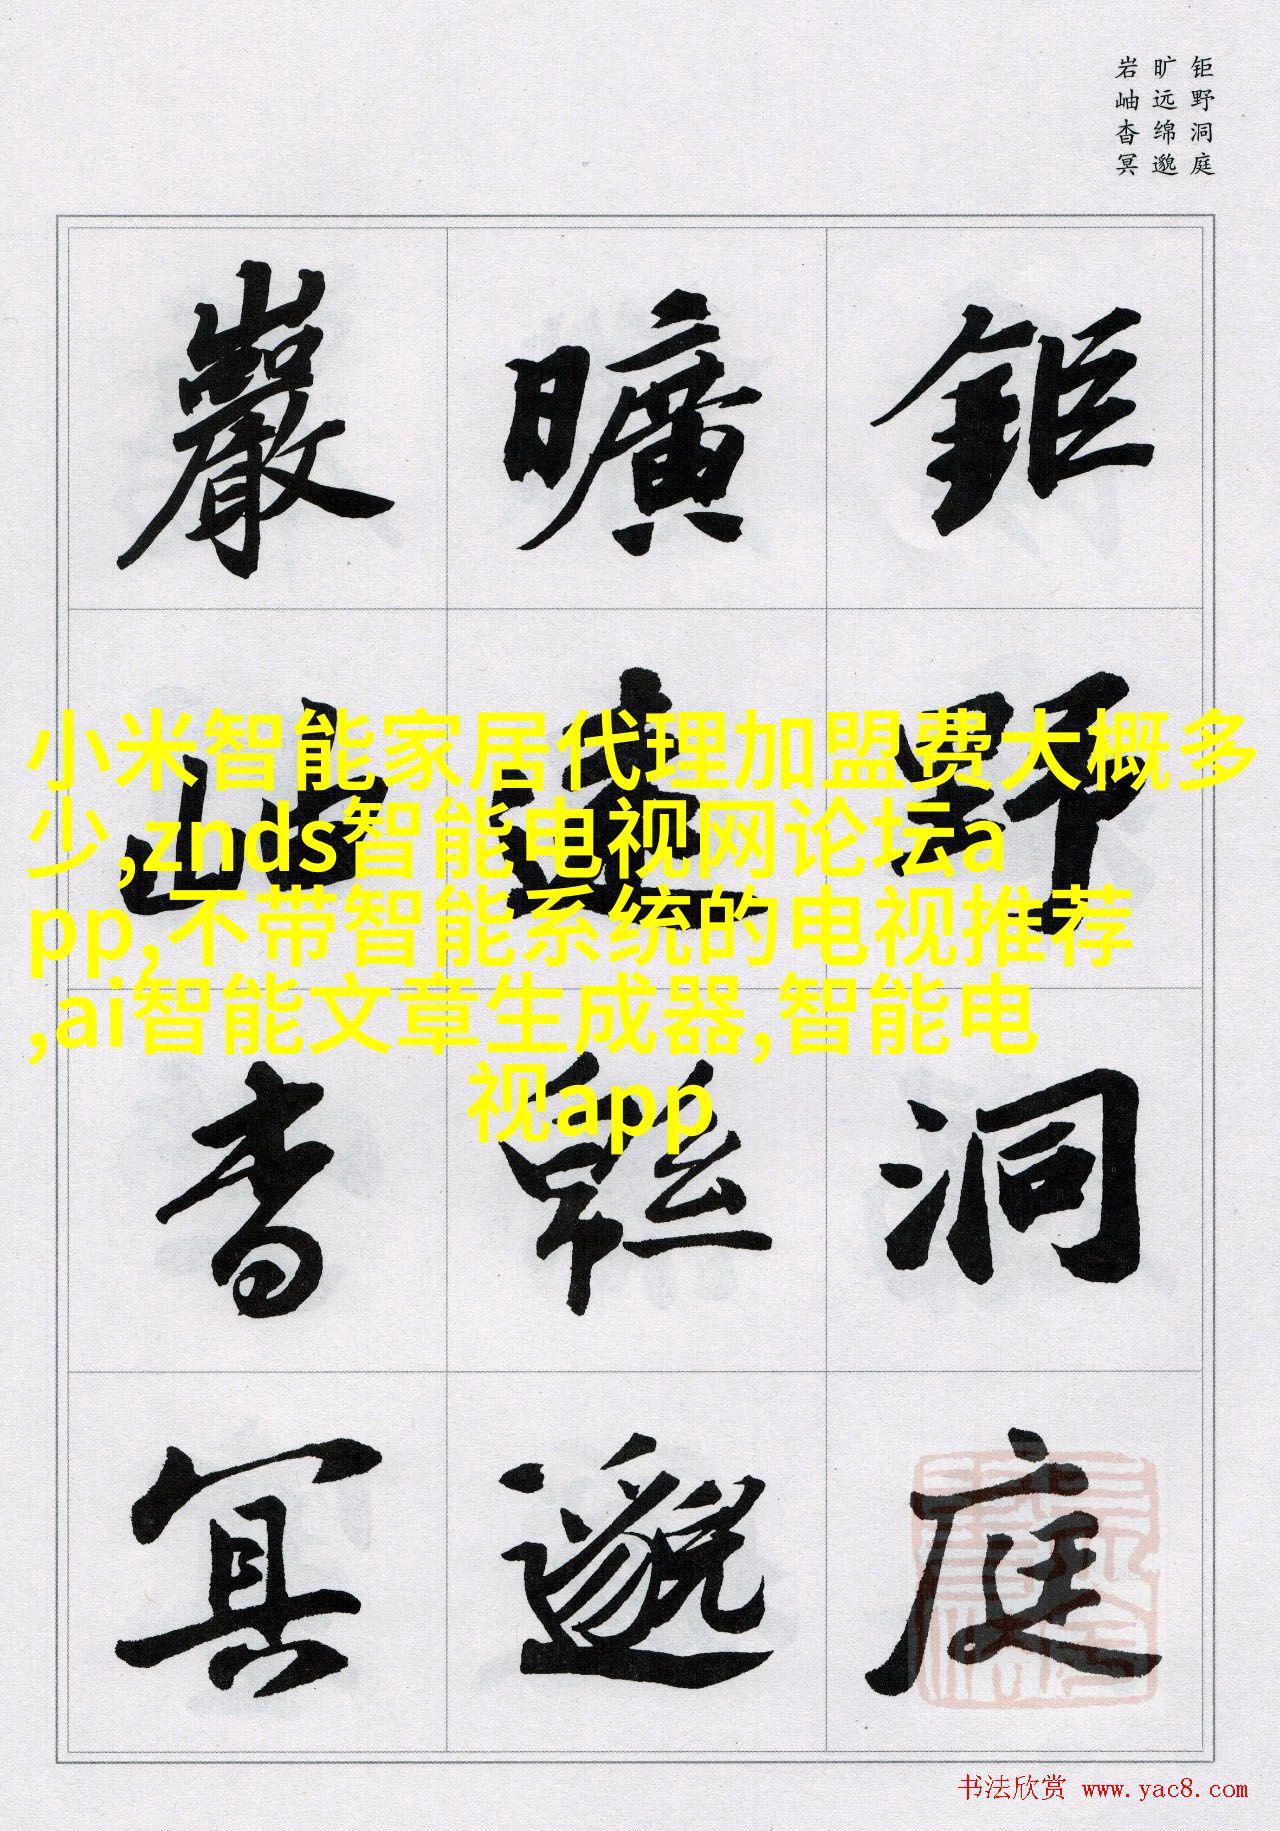 钜野洞庭
旷远绵邈
岩岫杳冥
鉅野洞庭
曠遠緜邈
巖岫杳冥
小米智能家居代理加盟费大概多
少,znds智能电视网论坛a
pp,不带智能系统的电视推荐
,ai智能文章生成器,智能电
视app
书法欣赏 www.yac8.com